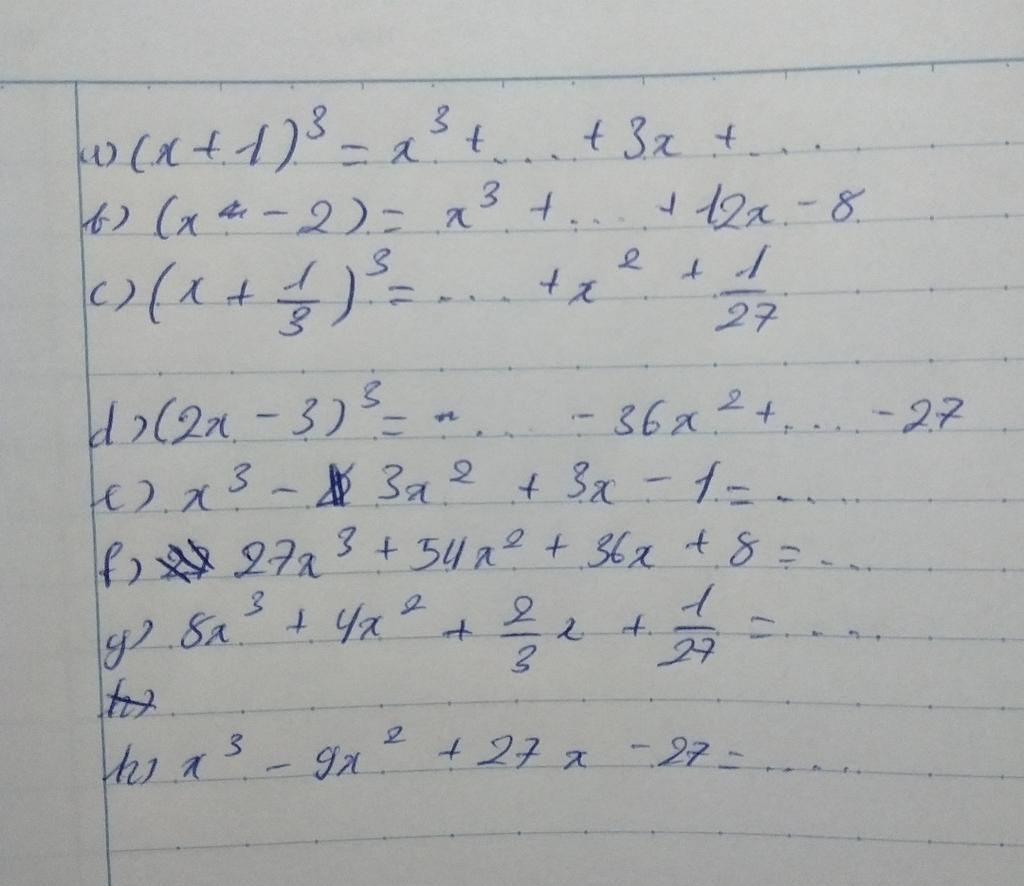 a) (x + 1)³ = x³ + .... + 3x + ....
b) (x - 2) = x³ + .... + 12x - 8
c) (x + 1/3)³ = .... + x² + 1/27
d) (2x - 3)³ = .... - 36x² + .... - 27
e) x³ - 3x² + 3x - 1 = ....
f) 27x³ + 54x² + 36x + 8 = ....
g) 8x³ + 4x² + 2/3 x + 1/27 = ....
h) x³ - 9x² + 27x - 27 = .....